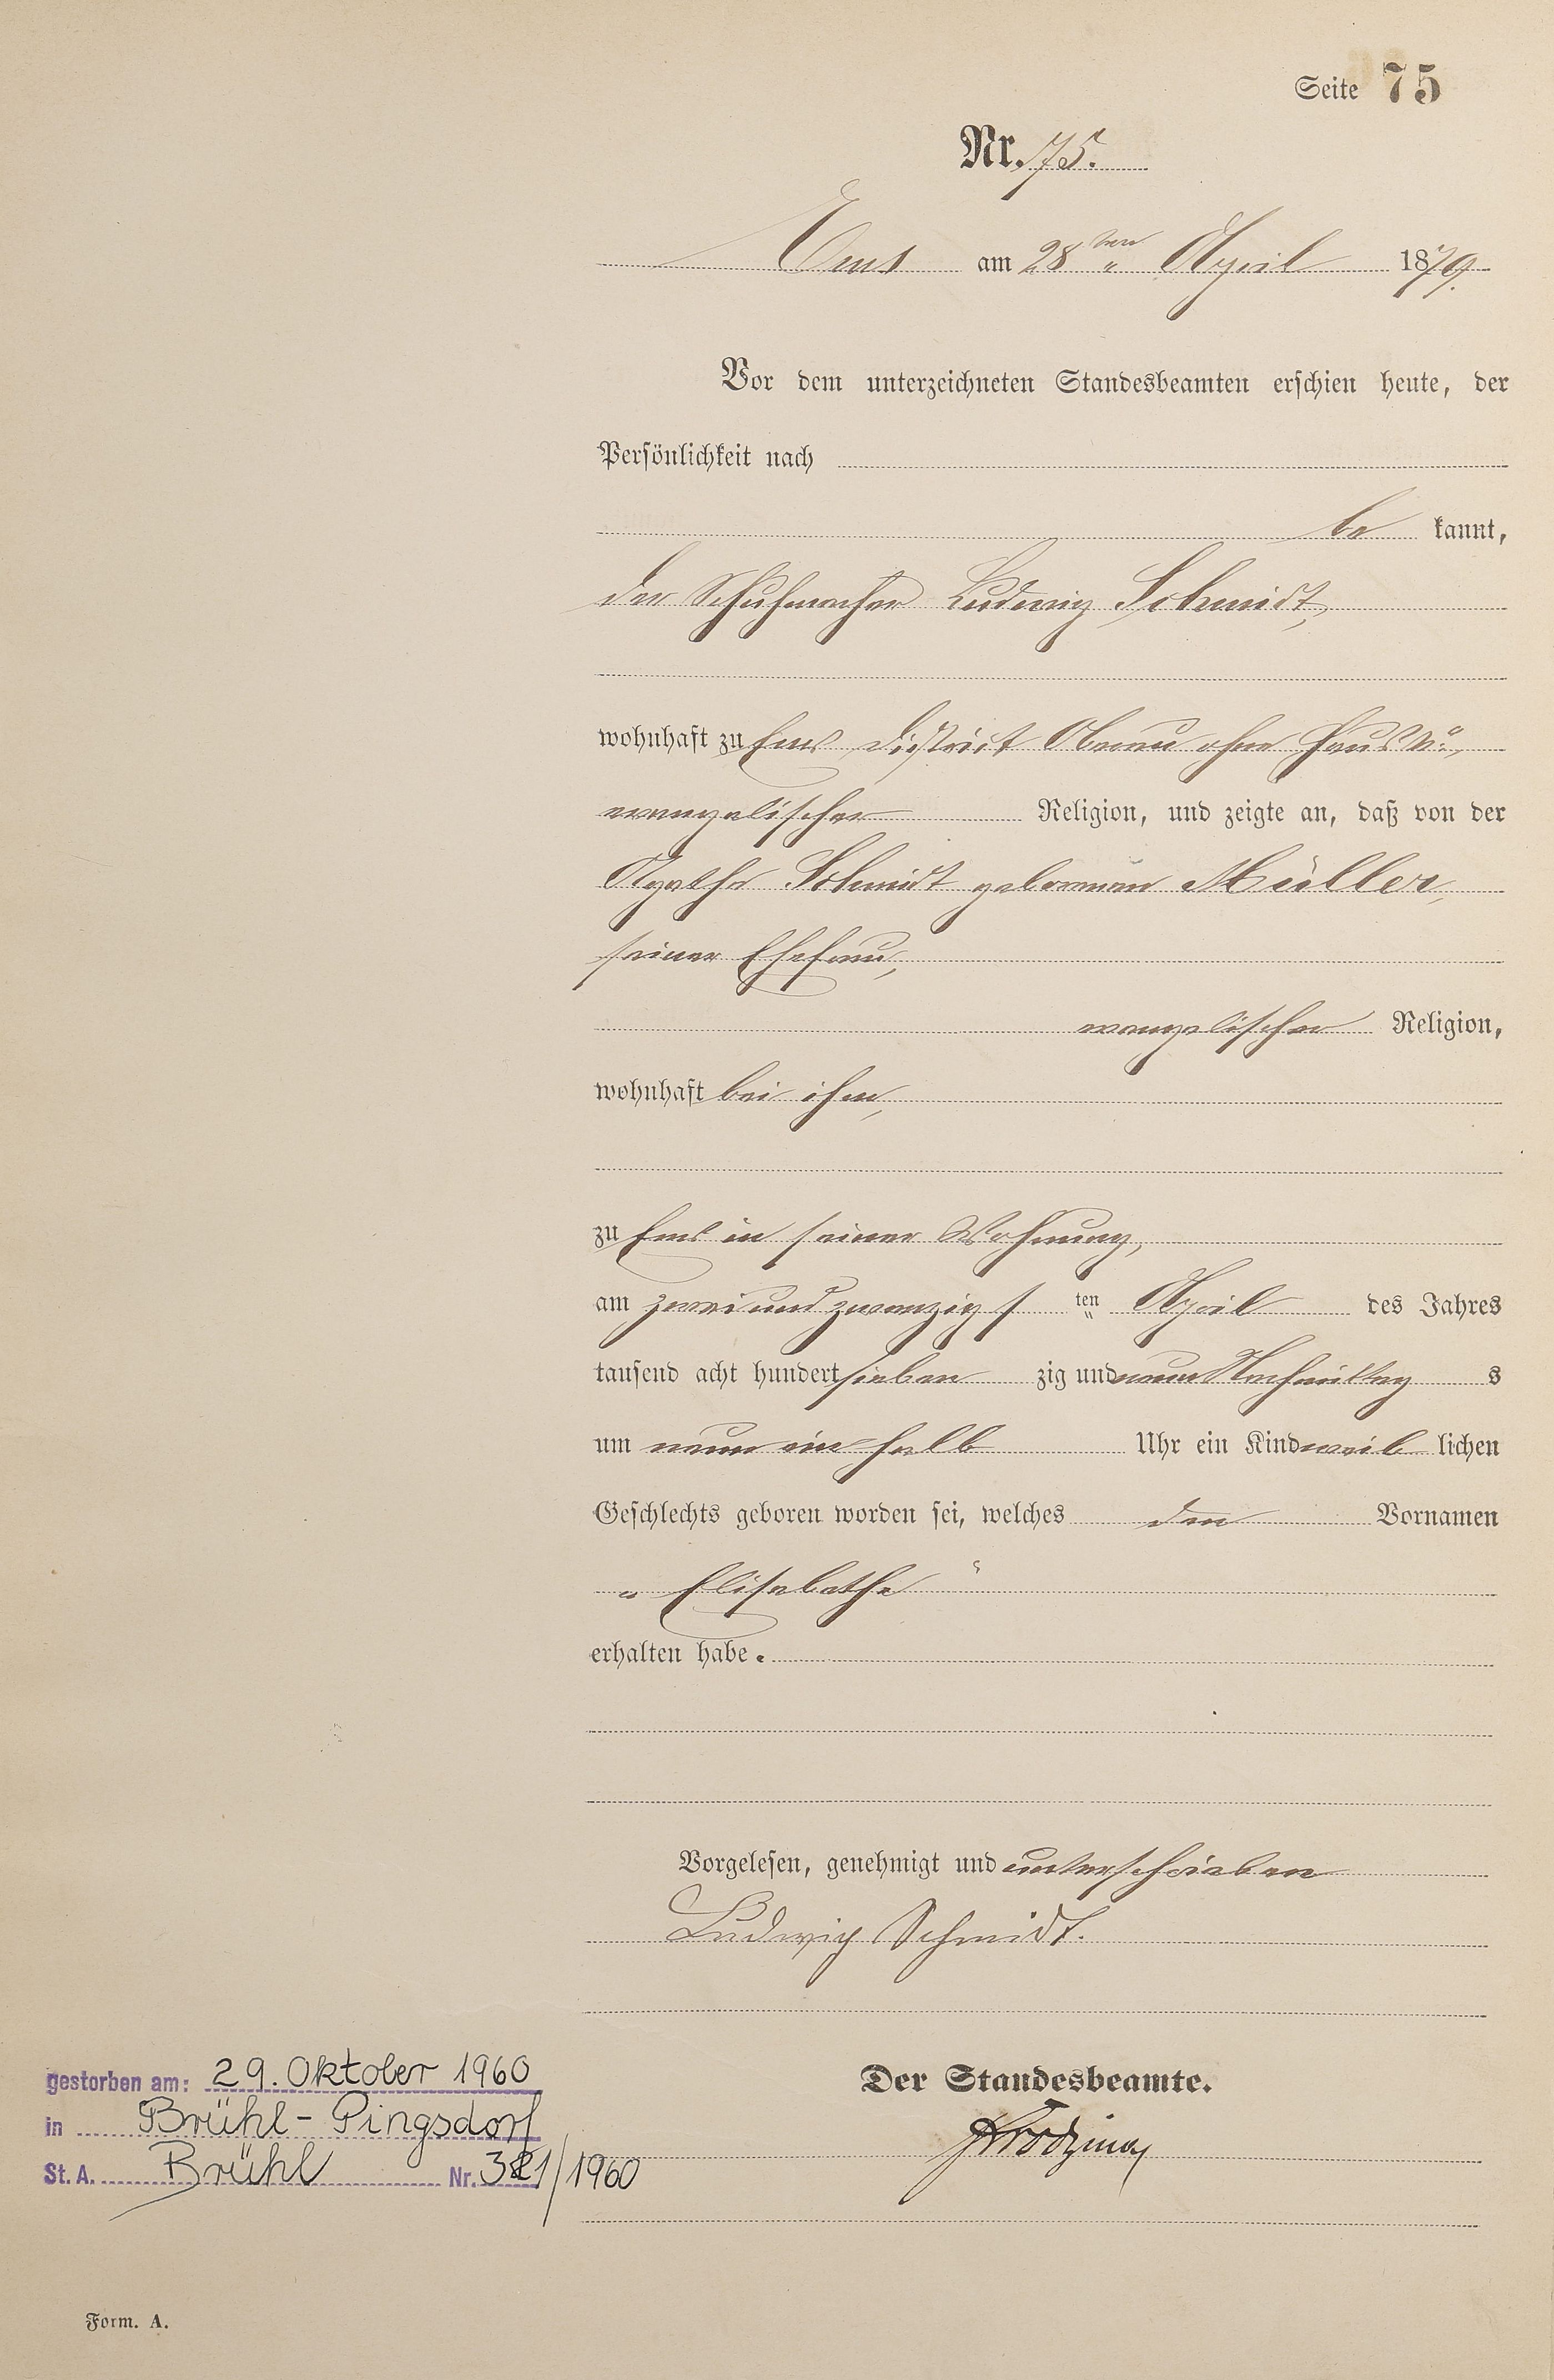 Seite 75
Nr. 75.
Ems am 28ten April 1879.
Vor dem unterzeichneten Standesbeamten erschien heute, der
Persönlichkeit nach
be kannt,
der Schuhmacher Ludwig Schmidt,
wohnhaft zu Ems District Obenau ohne Haus No,
evangelischer Religion, und zeigte an, daß von der
Agathe Schmidt geborenen Müller,
seiner Ehefrau,
evangelischer Religion,
wohnhaft bei ihm,
zu Ems in seiner Wohnung,
am zwei und zwanzigs ten April des Jahres
tausend acht hundert sieben zig und neun Nachmittag s
um neun ein halb Uhr ein Kind weib lichen
Geschlechts geboren worden sei, welches den Vornamen
„Elisabethe“
erhalten habe.
Vorgelesen, genehmigt und unterschrieben
Ludwig Schmidt.
Der Standesbeamte.
gestorben am: 29. Oktober 1960
in Brühl-Pingsdorf
St. A. Brühl Nr. /1960
Form. A.